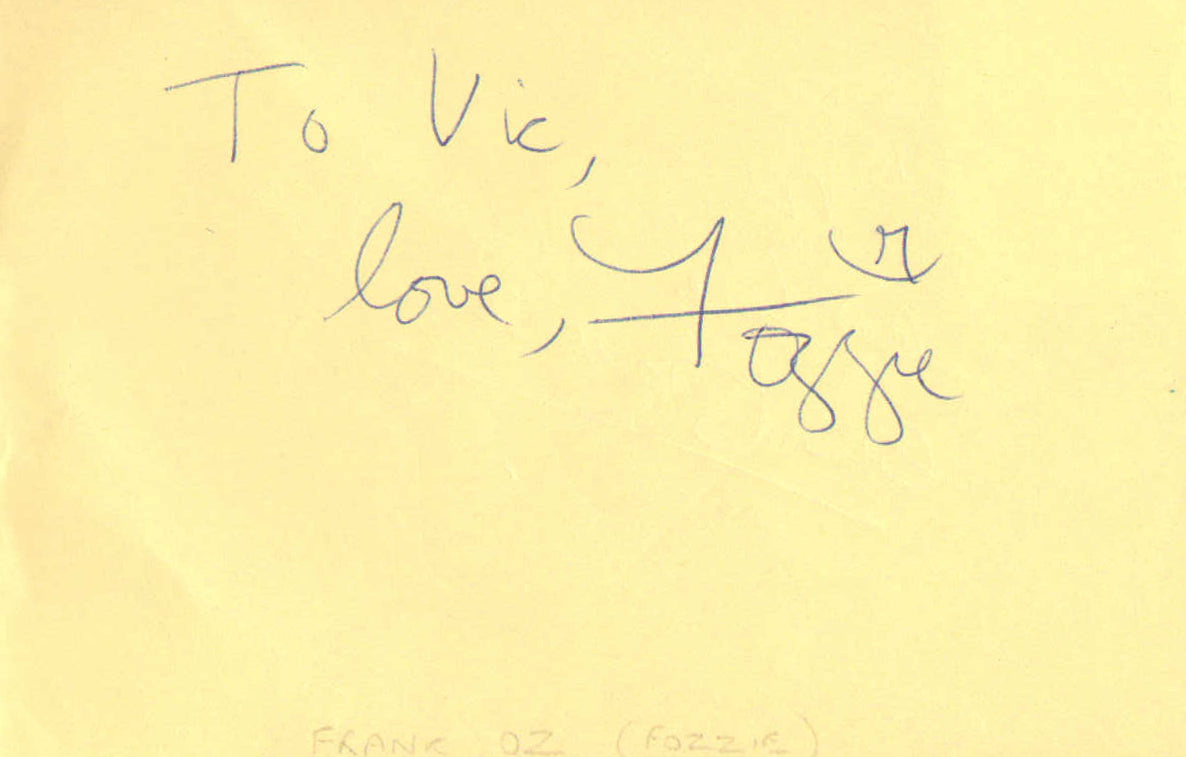 To Vic,
love, Fozzie
FRANK OZ (FOZZIE)